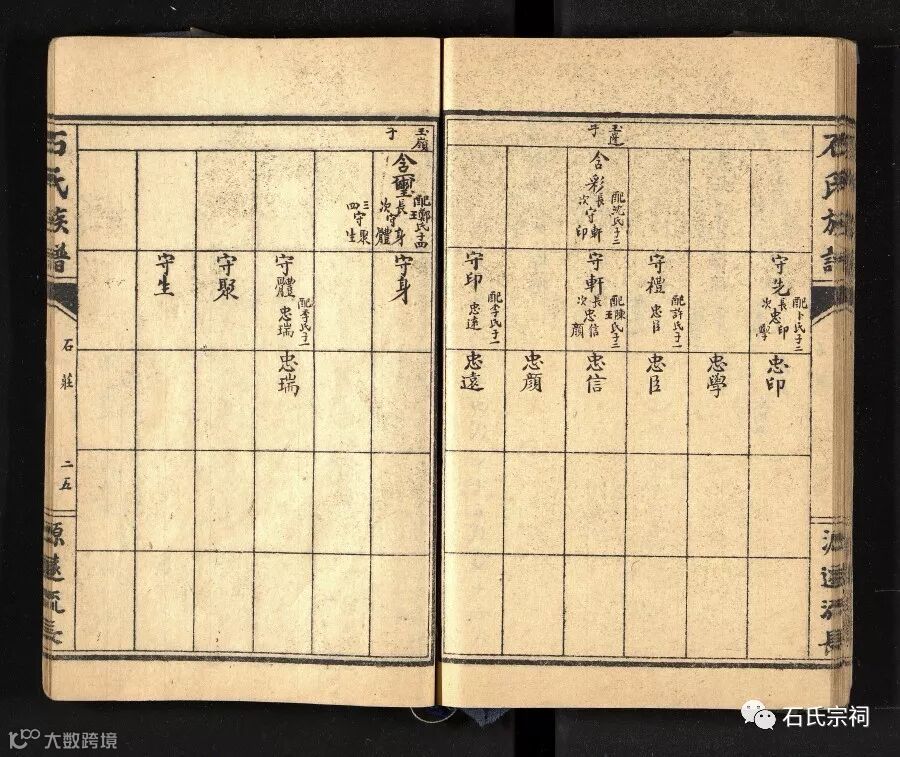 石氏族譜
源遠流長
玉蓮
子
含彩
配沈氏子二
長守軒
次守印
守先
配卜氏子二
長忠印
次忠學
守禮
配許氏子一
忠臣
守軒
配陳氏子二
王
長忠信
次顏
守印
配李氏子一
忠遠
忠印
忠學
忠臣
忠信
忠顏
忠遠
玉嶺
子
含璽
配鄭氏子四
王
長守身
次守體
三守聚
四生
守身
守體
配李氏子一
忠瑞
守聚
守生
忠瑞
石氏族譜
石莊
二五
源遠流長
石氏宗祠
大数跨境